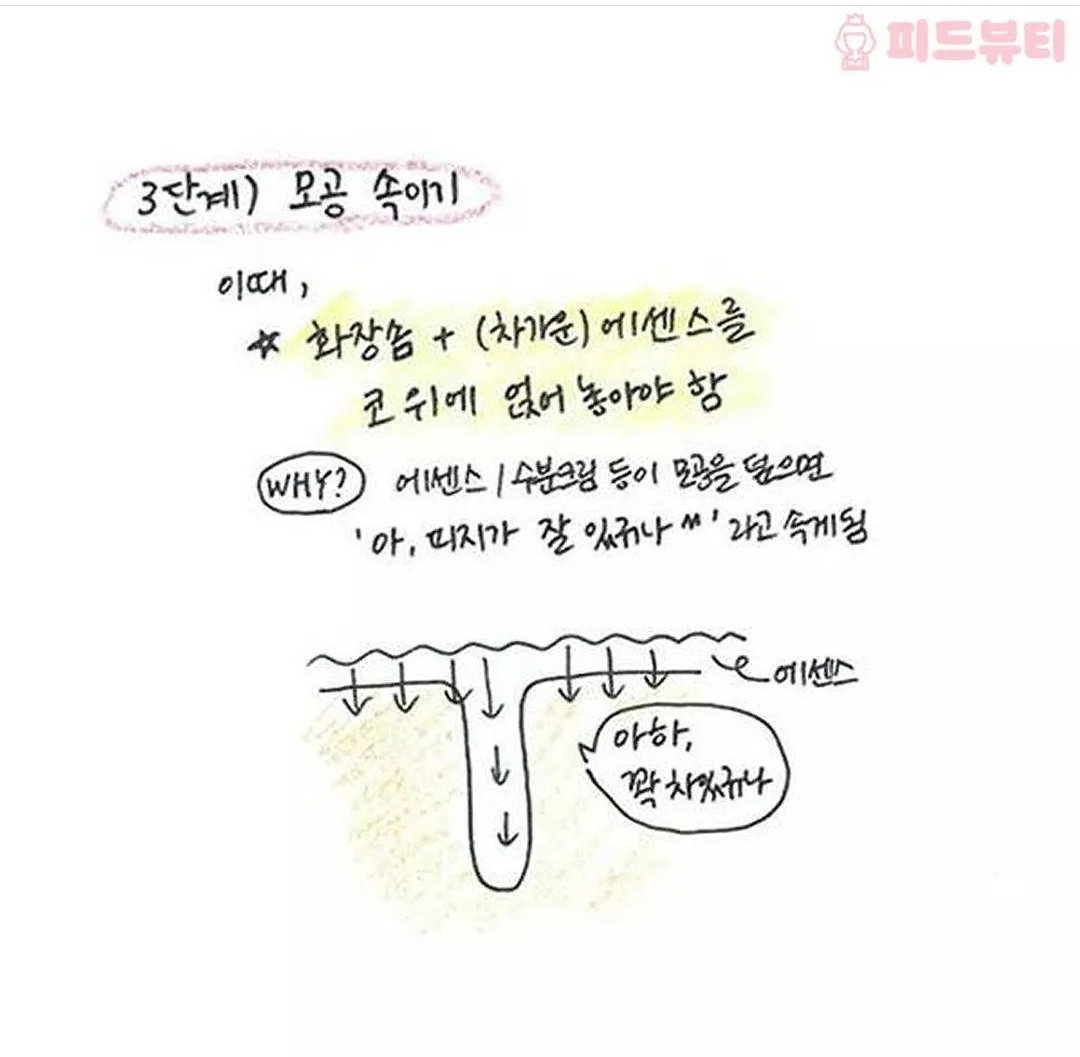 피드뷰티
3단계) 모공 속이기
이때,
☆ 화장솜 + (차가운) 에센스를
코 위에 얹어 놓아야 함
WHY? 에센스/수분크림 등이 모공을 덮으면
'아, 피지가 잘 있규나 ^^' 라고 속게됨
에센스
아하,
꽉 차있규나